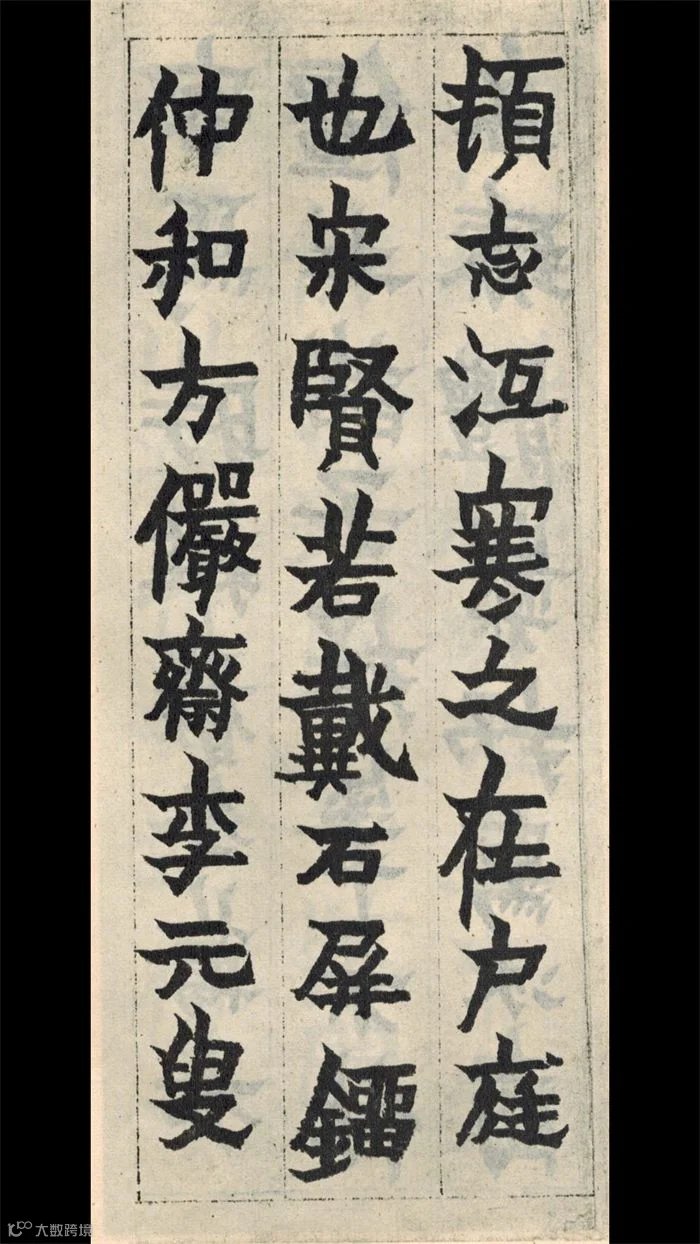 頓忘沍寒之在户庭
也宋賢若戴石屏鐂
仲和方儼齋李元叟
大数跨境